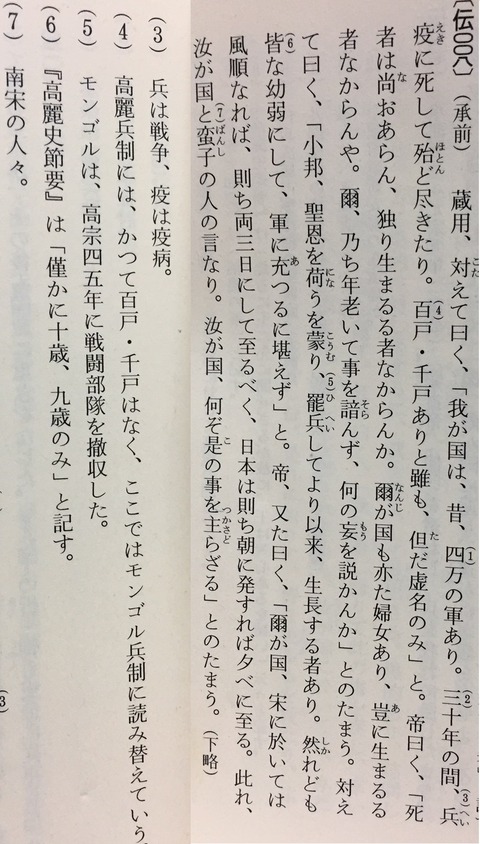 〔伝〇〇八〕 (承前) 蔵用、対えて曰く、「我が国は、昔、四万の軍あり。三十年の間、兵
疫に死して殆ど尽きたり。百戸・千戸ありと雖も、但だ虚名のみ」と。帝曰く、「死
者は尚おあらん、独り生まるる者なからんか。爾が国も亦た婦女あり、豈に生まるる
者なからんや。爾、乃ち年老いて事を諳んず、何の妄を説かんか」とのたまう。対え
て曰く、「小邦、聖恩を荷うを蒙り、罷兵してより以来、生長する者あり。然れども
皆な幼弱にして、軍に充つるに堪えず」と。帝、又た曰く、「爾が国、宋に於いては
風順なれば、則ち両三日にして至るべく、日本は則ち朝に発すれば夕べに至る。此れ、
汝が国と蛮子の人の言なり。汝が国、何ぞ是の事を主らざる」とのたまう。(下略)
(3) 兵は戦争、疫は疫病。
(4) 高麗兵制には、かつて百戸・千戸はなく、ここではモンゴル兵制に読み替えていう
(5) モンゴルは、高宗四五年に戦闘部隊を撤収した。
(6) 『高麗史節要』は「僅かに十歳、九歳のみ」と記す。
(7) 南宋の人々。